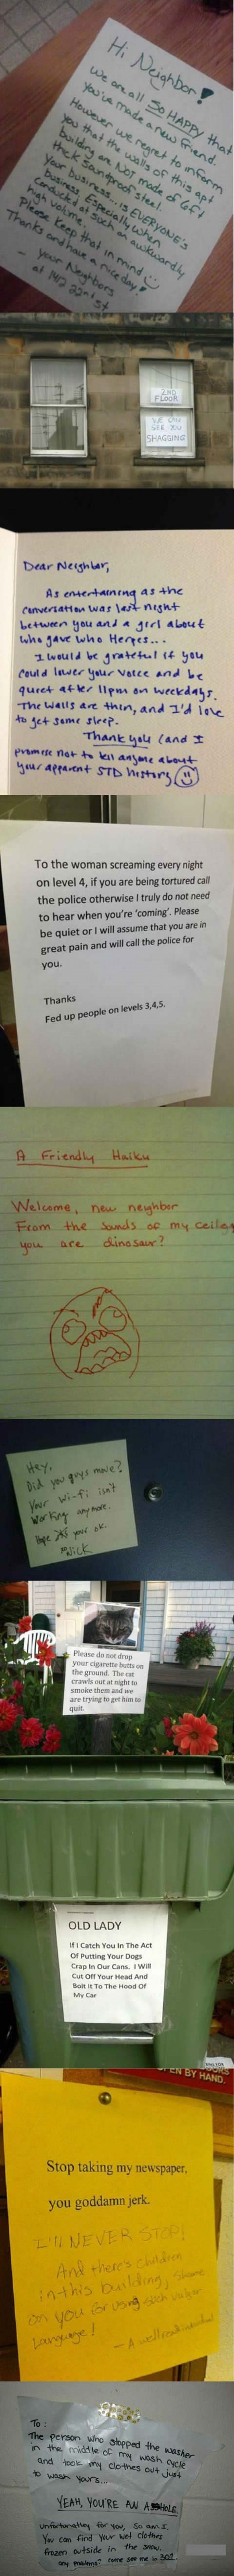 Hi Neighbor!
We are all SO HAPPY that
you've made a new friend.
However we regret to inform
you that the walls of this apt
building are NOT made of 6ft
thick soundproof steel.
Your business is EVERYONE's
business. Especially when
conducted at such an awkwardly
high volume.
Please keep that in mind
Thanks and have a nice day!
- your Neighbors
at 1412
2ND
FLOOR
WE CAN
SEE YOU
SHAGGING
Dear Neighbor,
As entertaining as the
conversation was last night
between you and a girl about
who gave who Herpes...
I would be grateful if you
could lower your voice and be
quiet after 11pm on weekdays.
The walls are thin, and I'd love
to get some sleep.
Thank you (and I
promise not to tell anyone about
your apparent STD history)
To the woman screaming every night
on level 4, if you are being tortured call
the police otherwise I truly do not need
to hear when you're 'coming'. Please
be quiet or I will assume that you are in
great pain and will call the police for
you.
Thanks
Fed up people on levels 3,4,5.
A Friendly Haiku
Welcome, new neighbor
From the sounds of my ceiling
you are dinosaur?
Hey,
Did you guys move?
Your wi-fi isn't
working anymore.
Hope your ok.
Nick
Please do not drop
your cigarette butts on
the ground. The cat
crawls out at night to
smoke them and we
are trying to get him to
quit.
OLD LADY
If I Catch You In The Act
Of Putting Your Dogs
Crap In Our Cans. I Will
Cut Off Your Head And
Bolt It To The Hood Of
My Car
OPEN BY HAND.
Stop taking my newspaper,
you goddamn jerk.
I'll NEVER STOP!
And there's children
in this building, Shame
on you for using such vulgar
Language!
- A well read individual
To:
The person who stopped the washer
in the middle of my wash cycle
and took my clothes out just
to wash yours...
YEAH, YOU'RE AN A HOLE.
Unfortunately for you, So am I.
You can find your wet clothes
frozen outside in the snow.
any problems? come see me in 307.